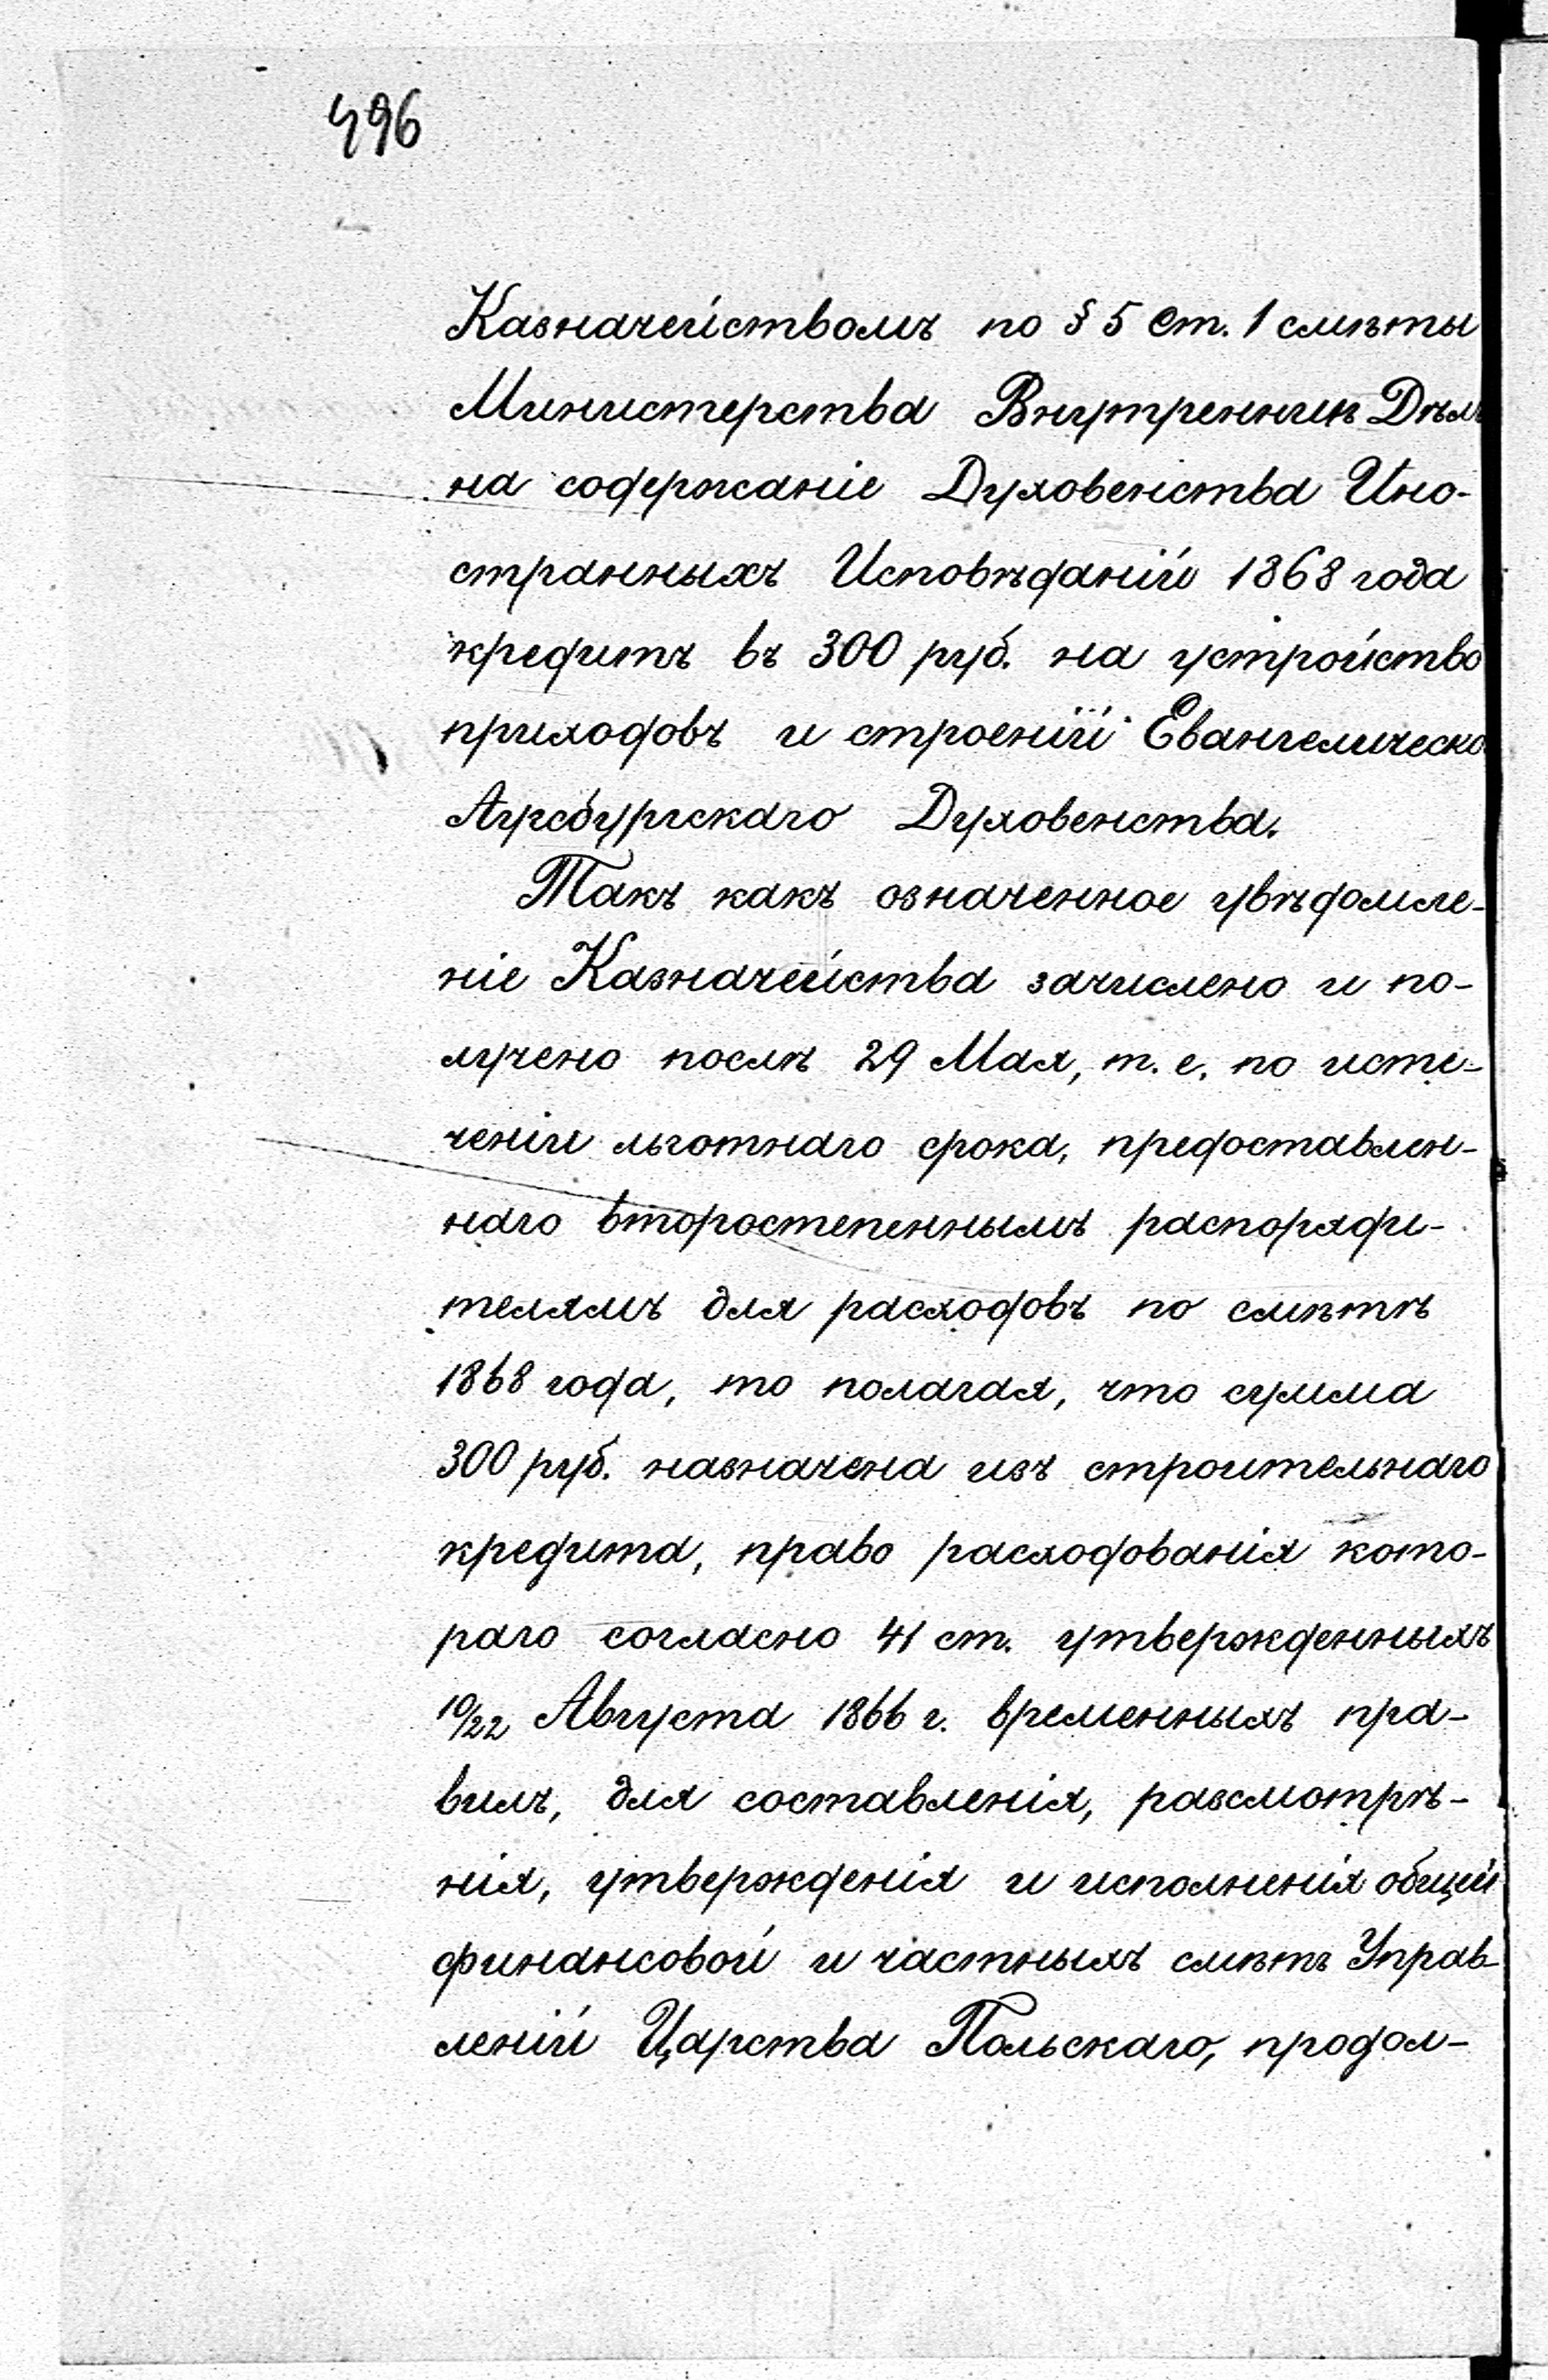 496
Казначействомъ по § 5 ст. 1 смѣты
Министерства Внутреннихъ Дѣлъ
на содержаніе Духовенства Ино-
странныхъ Исповѣданій 1868 года
кредитъ въ 300 руб. на устройство
приходовъ и строеній Евангелическо
Аугсбургскаго Духовенства.
Такъ какъ означенное увѣдомле-
ніе Казначейства зачислено и по-
лучено послѣ 29 Мая, т. е. по исте-
ченіи льготнаго срока, предоставлен-
наго второстепеннымъ распоряди-
телямъ для расходовъ по смѣтѣ
1868 года, то полагая, что сумма
300 руб. назначена изъ строительнаго
кредита, право расходованія кото-
раго согласно 41 ст. утвержденныхъ
10/22 Августа 1866 г. временныхъ пра-
вилъ, для составленія, разсмотрѣ-
нія, утвержденія и исполненія общей
финансовой и частныхъ смѣтъ Управ-
леній Царства Польскаго, продол-